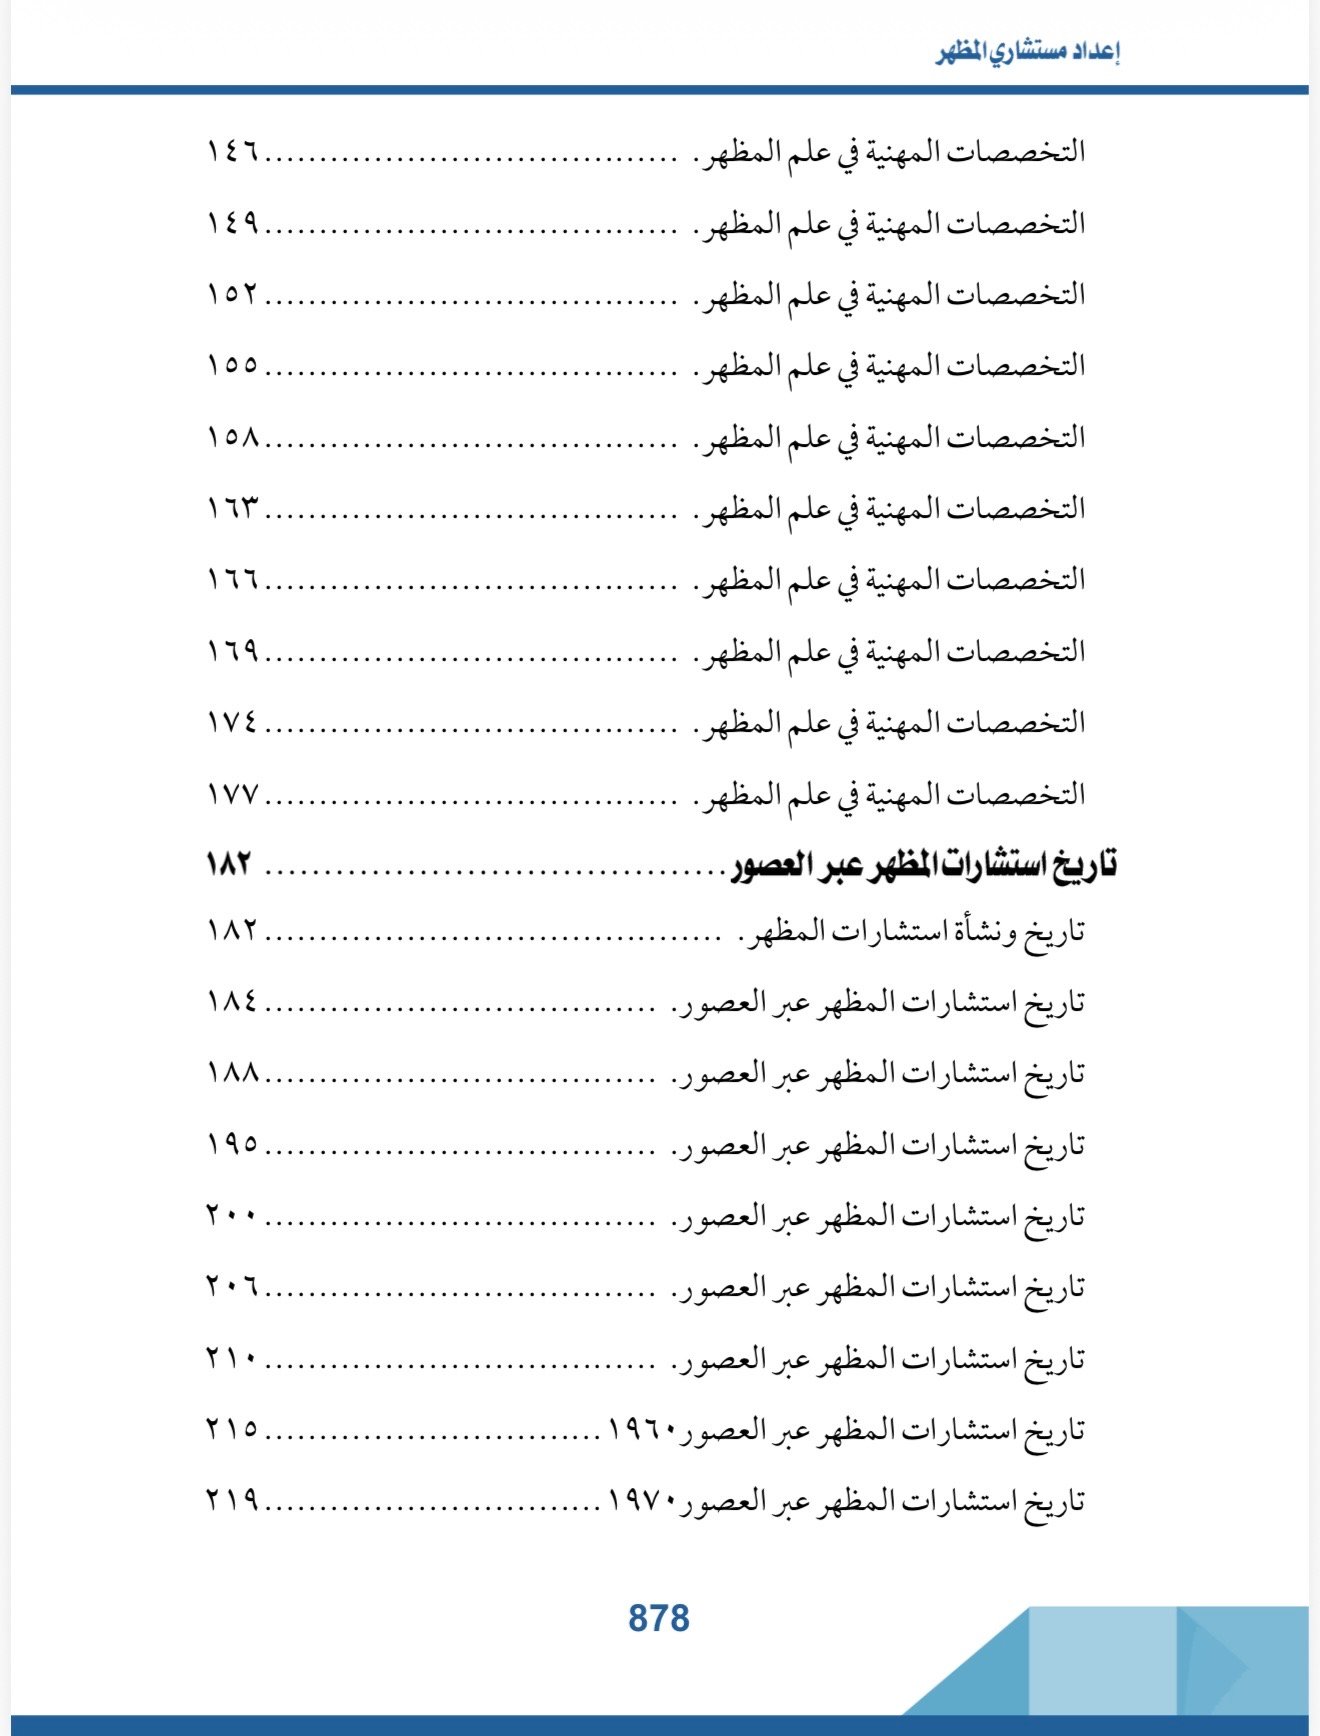 إعداد مستشاري المظهر
التخصصات المهنية في علم المظهر . ..................................... ١٤٦
التخصصات المهنية في علم المظهر . ..................................... ١٤٩
التخصصات المهنية في علم المظهر . ..................................... ١٥٢
التخصصات المهنية في علم المظهر . ..................................... ١٥٥
التخصصات المهنية في علم المظهر . ..................................... ١٥٨
التخصصات المهنية في علم المظهر . ..................................... ١٦٣
التخصصات المهنية في علم المظهر . ..................................... ١٦٦
التخصصات المهنية في علم المظهر . ..................................... ١٦٩
التخصصات المهنية في علم المظهر . ..................................... ١٧٤
التخصصات المهنية في علم المظهر . ..................................... ١٧٧
تاريخ استشارات المظهر عبر العصور ....................................... ١٨٢
تاريخ ونشأة استشارات المظهر . ......................................... ١٨٢
تاريخ استشارات المظهر عبر العصور. ................................... ١٨٤
تاريخ استشارات المظهر عبر العصور. ................................... ١٨٨
تاريخ استشارات المظهر عبر العصور. ................................... ١٩٥
تاريخ استشارات المظهر عبر العصور. ................................... ٢٠٠
تاريخ استشارات المظهر عبر العصور. ................................... ٢٠٦
تاريخ استشارات المظهر عبر العصور. ................................... ٢١٠
تاريخ استشارات المظهر عبر العصور ١٩٦٠ .............................. ٢١٥
تاريخ استشارات المظهر عبر العصور ١٩٧٠ .............................. ٢١٩
878